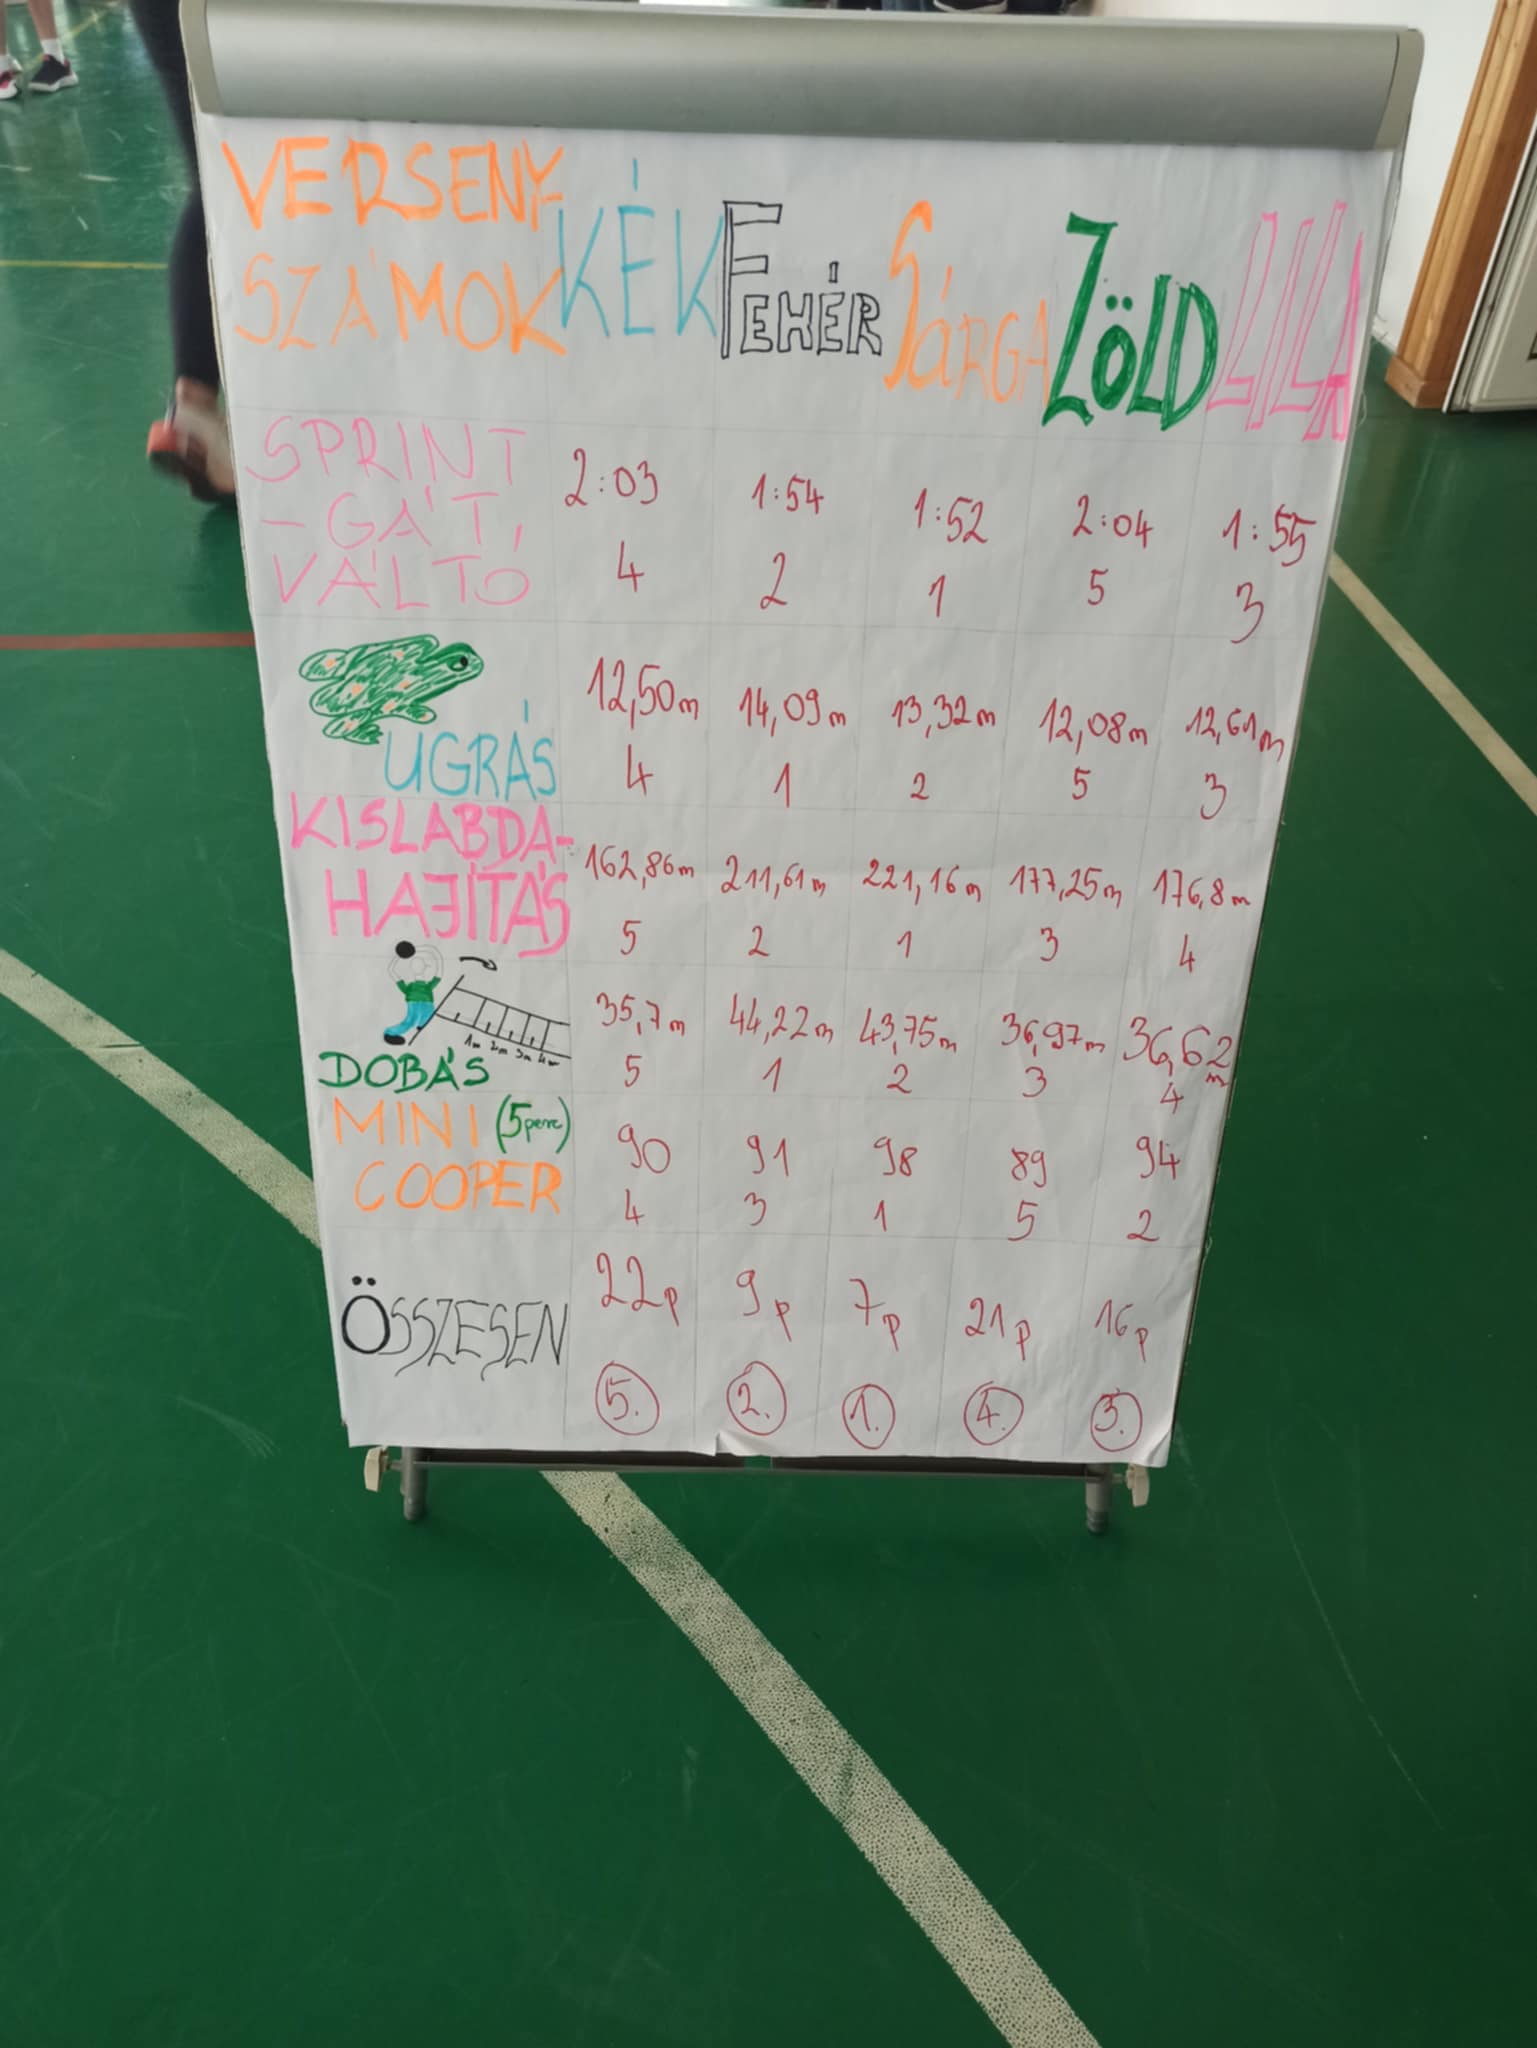 VERSENY-
SZÁMOK KÉK FEHÉR SÁRGA ZÖLD LILA
SPRINT
-GÁT,
VÁLTÓ
2:03 1:54 1:52 2:04 1:55
4 2 1 5 3
UGRÁS
12,50m 14,09m 13,32m 12,08m 12,61m
4 1 2 5 3
KISLABDA-
HAJÍTÁS
162,86m 211,61m 221,16m 177,25m 176,8m
5 2 1 3 4
1m 2m 3m 4m
DOBÁS
35,7m 44,22m 43,75m 36,97m 36,62m
5 1 2 3 4
MINI (5perc)
COOPER
90 91 98 89 94
4 3 1 5 2
ÖSSZESEN
22p 9p 7p 21p 16p
5. 2. 1. 4. 3.